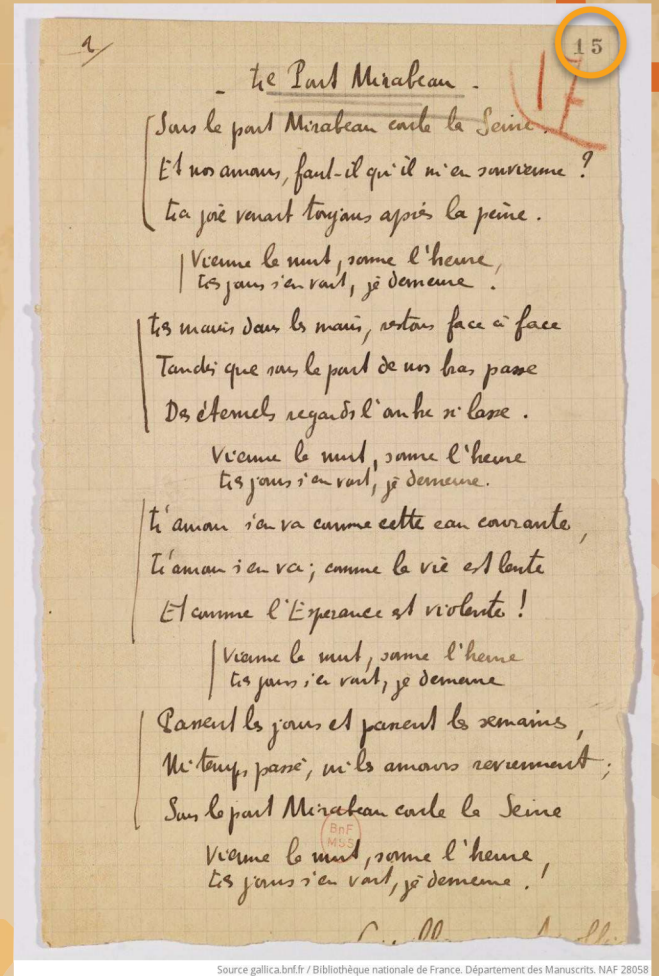 1/
15
17
- Le Pont Mirabeau -
Sous le pont Mirabeau coule la Seine.
Et nos amours, faut-il qu'il m'en souvienne ?
La joie venait toujours après la peine.
Vienne la nuit, sonne l'heure,
Les jours s'en vont, je demeure.
Les mains dans les mains, restons face à face
Tandis que sous le pont de nos bras passe
Des éternels regards l'onde si lasse.
Vienne la nuit, sonne l'heure
Les jours s'en vont, je demeure.
L'amour s'en va comme cette eau courante,
L'amour s'en va ; comme la vie est lente
Et comme l'Espérance est violente !
Vienne la nuit, sonne l'heure
Les jours s'en vont, je demeure
Passent les jours et passent les semaines,
Ni temps passé, ni les amours reviennent ;
Sous le pont Mirabeau coule la Seine
BnF
MSS
Vienne la nuit, sonne l'heure,
Les jours s'en vont, je demeure. !
Source gallica.bnf.fr / Bibliothèque nationale de France. Département des Manuscrits. NAF 28058